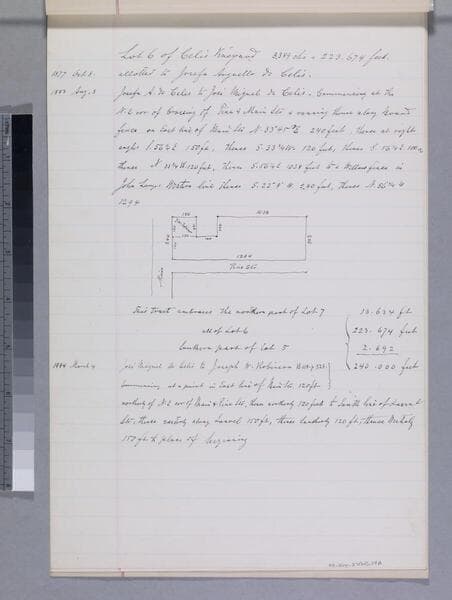 Lot 6 of Celis Vineyard 3389 chs = 223.674 feet.
1877 Oct. 8. allotted to Josefa Arguello de Celis.
1883 Aug. 3 Josefa A. de Celis to José Miguel de Celis. Commencing at the
N.E cor of crossing of Pine & Main Sts & running thence along
fence on East line of Main St. N. 33° 45' E 240 feet, thence at right
angles S. 56¼ E 150 ft, thence S. 33¾ W. 120 feet, thence S. 56¼ E 100
thence N 33¾ E 120 feet, thence S. 56¼ E 1038 feet to a Willow fence in
John line thence S. 240 feet, thence N. 56¼ W
1294
150
1038
120
120
150
100
240
240
1294
Main
Pine St.
This tract embraces the northern part of Lot 7 13.634 ft
all of Lot 6 223.674 feet
Southern part of Lot 5 2.692
240.000 feet
1884 March 4 José Miguel de Celis to Joseph W. Robinson
Commencing at a point in East line of Main St. 120 ft
northerly of N.E cor of Main & Pine Sts, thence northerly 120 feet to South line of Laurel
St., thence easterly along Laurel 150 ft, thence southerly 120 ft, thence Westerly
150 ft to place of beginning